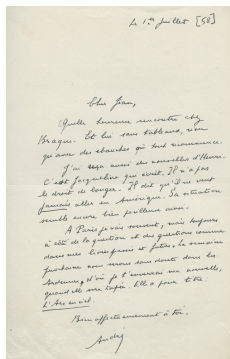 Le 1er juillet [58]
Cher Jean,
Quelle heureuse rencontre chez
Braque. Et lui sans tableaux, rien
qu'avec des ébauches qu'où tout recommence.
J'ai reçu aussi des nouvelles d'Henri.
C'est Jacqueline qui écrit. Il n'a pas
le droit de bouger. Il dit qu'il ne veut
jamais aller en Amérique. Sa situation
semble encore bien périlleuse ainsi.
A Paris je vais souvent, mais toujours
à côté de la question et des questions comme
dans une
prochaine nous irons sans doute dans les
Ardennes, d'où je t'enverrai une nouvelle,
quand elle sera tapée. Elle a pour titre
L'Arc en ciel.
Bien affectueusement à toi.
André